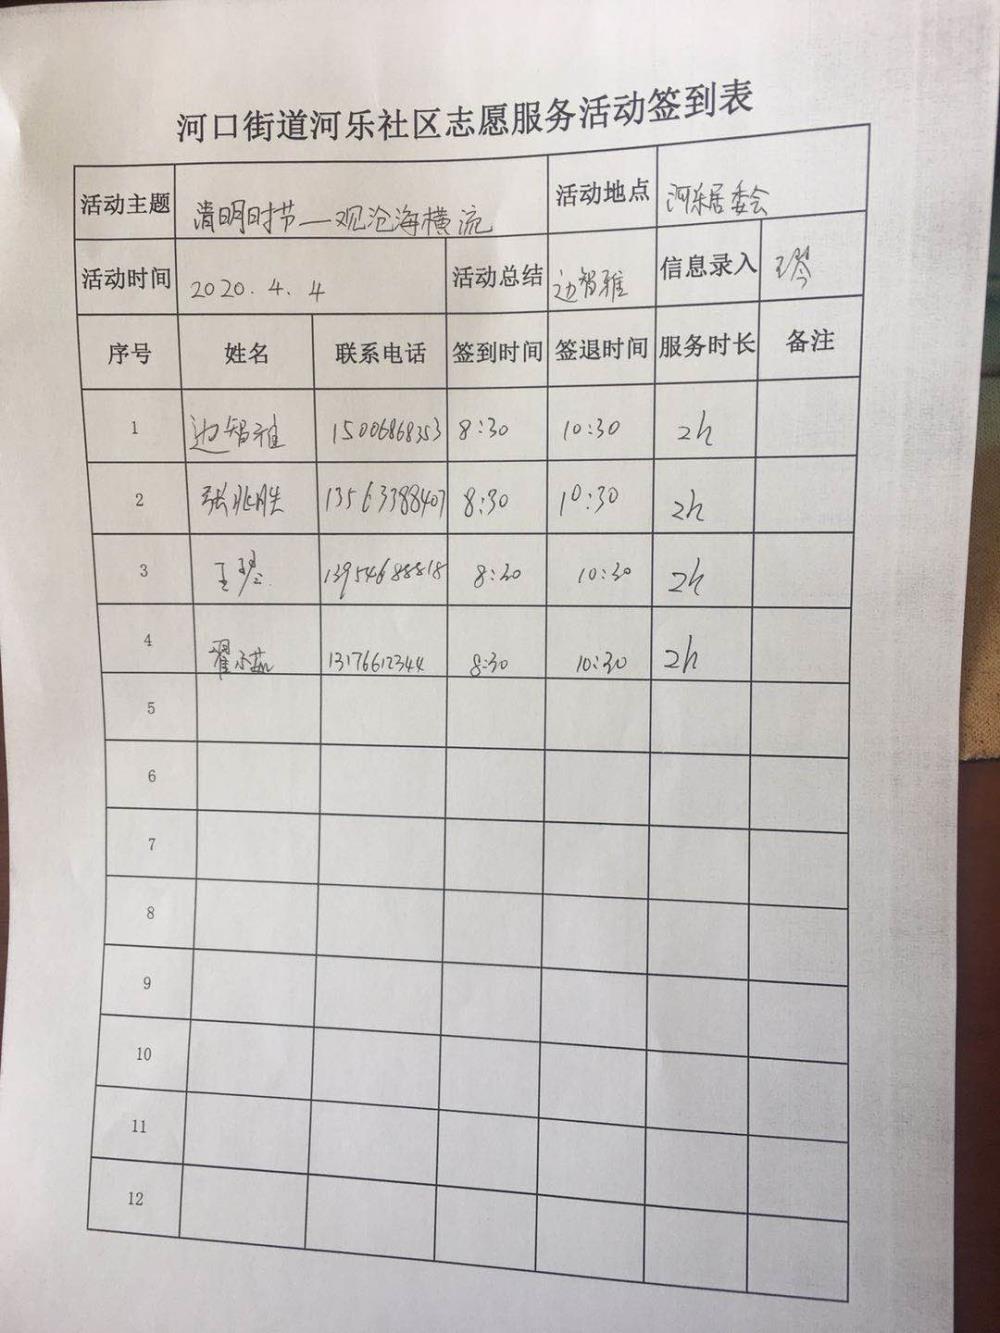 河口街道河乐社区志愿服务活动签到表
活动主题 清明时节—观沧海横流 活动地点 河乐居委会
活动时间 2020.4.4 活动总结 边智雅 信息录入 王琴
序号 姓名 联系电话 签到时间 签退时间 服务时长 备注
1 边智雅 15006868353 8:30 10:30 2h
2 张兆胜 13563388407 8:30 10:30 2h
3 王琴 13954688818 8:30 10:30 2h
4 翟 13176612344 8:30 10:30 2h
5
6
7
8
9
10
11
12